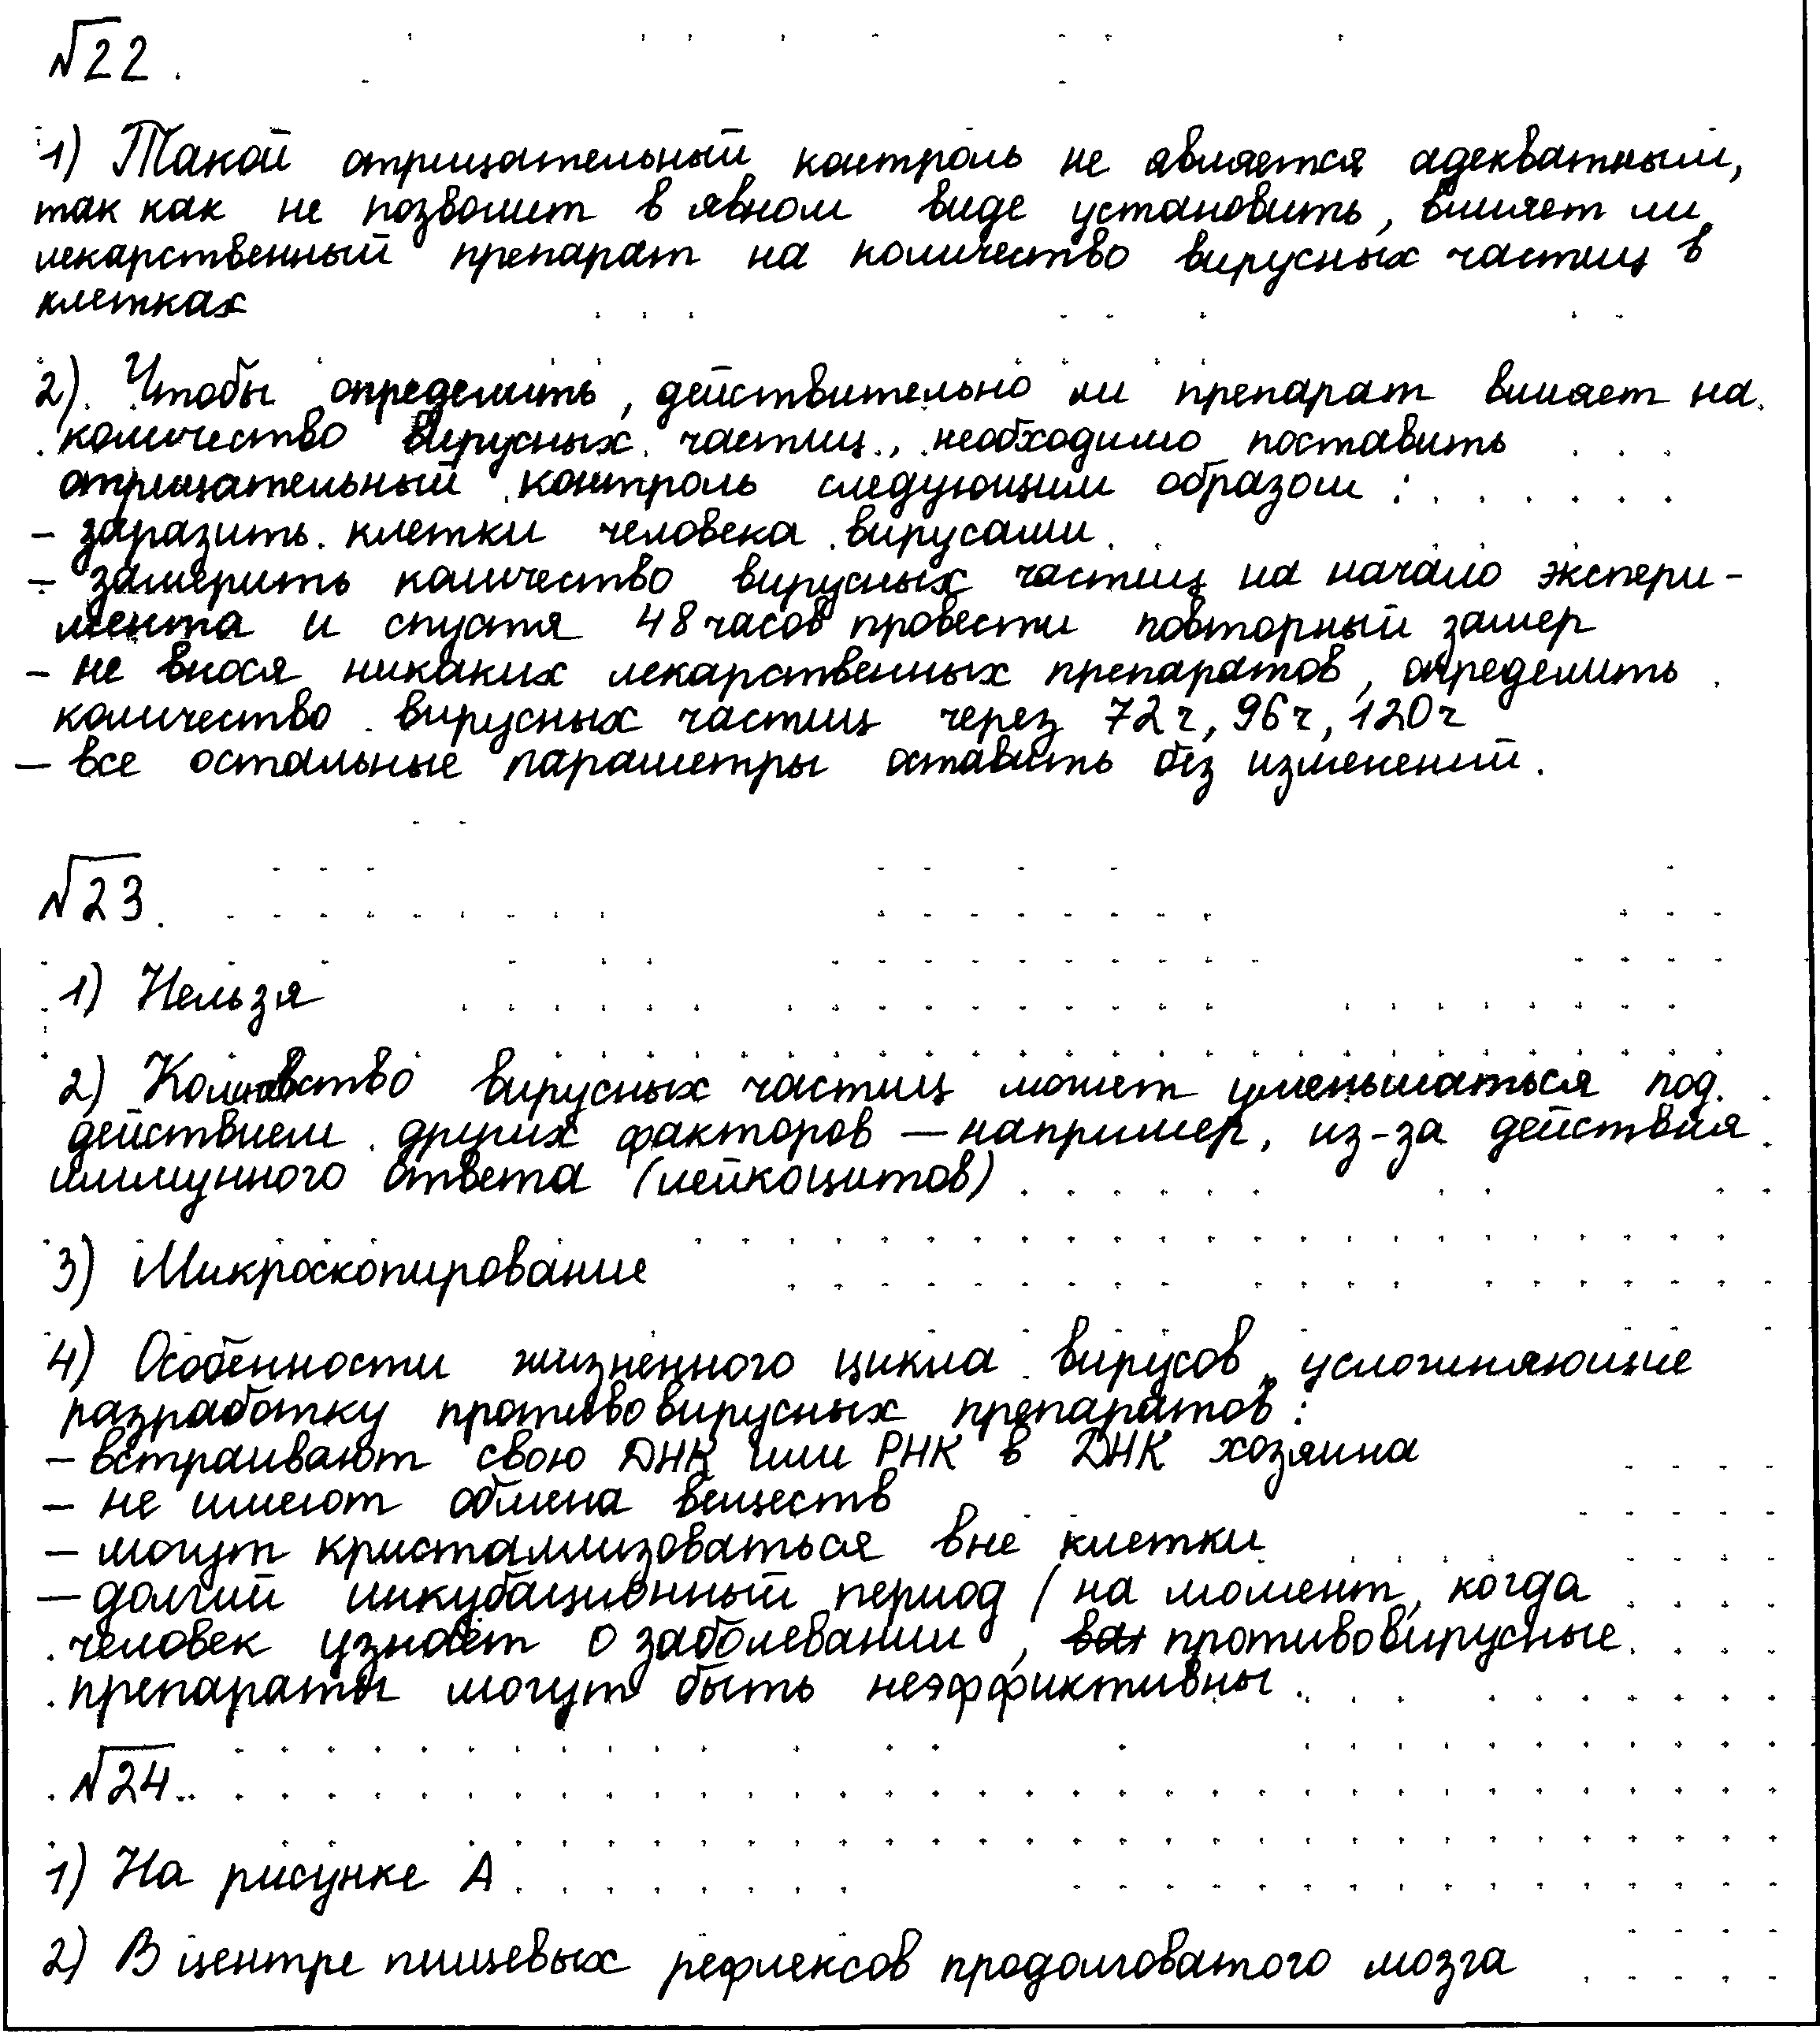 №22.
1) Такой отрицательный контроль не является адекватным,
так как не позволит в явном виде установить, влияет ли
лекарственный препарат на количество вирусных частиц в
клетках
2). Чтобы определить, действительно ли препарат влияет на
количество вирусных частиц, необходимо поставить
отрицательный контроль следующим образом:
- заразить клетки человека вирусами
- замерить количество вирусных частиц на начало экспери-
мента и спустя 48 часов провести повторный замер
- не внося никаких лекарственных препаратов, определить
количество вирусных частиц через 72 ч, 96 ч, 120 ч
- все остальные параметры оставить без изменений.
№23.
1) Нельзя
2) Количество вирусных частиц может уменьшаться под
действием других факторов — например, из-за действия
иммунного ответа (лейкоцитов)
3) Микроскопирование
4) Особенности жизненного цикла вирусов, усложняющие
разработку противовирусных препаратов:
- встраивают свою ДНК или РНК в ДНК хозяина
- не имеют обмена веществ
- могут кристаллизоваться вне клетки
- долгий инкубационный период (на момент, когда
человек узнает о заболевании, противовирусные
препараты могут быть неэффиктивны.
№24.
1) На рисунке А
2) В центре пищевых рефлексов продолговатого мозга